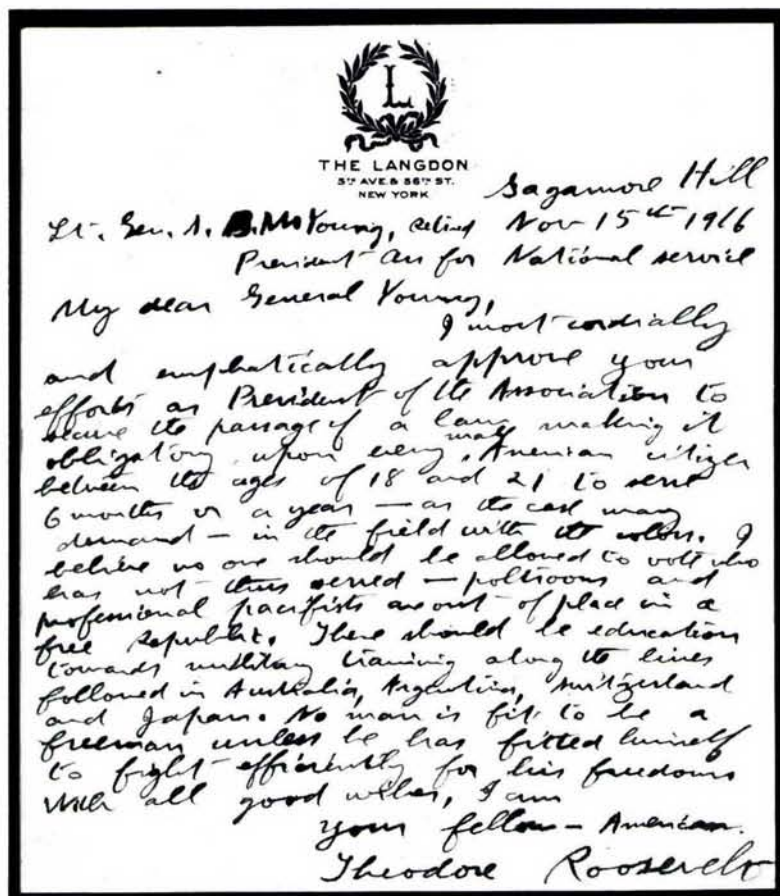 L
THE LANGDON
5TH AVE. & 56TH ST.
NEW YORK
Sagamore Hill
Lt. Gen. S. B. M. Young, retired Nov 15th 1916
President Ass for National service
My dear General Young,
I most cordially
and emphatically approve your
efforts as President of the Association to
secure the passage of a law making it
obligatory upon every male American citizen
between the ages of 18 and 21 to serve
6 months or a year – as the case may
demand – in the field with the colors. I
believe no one should be allowed to vote who
has not thus served – poltroons and
professional pacifists are out of place in a
free Republic. There should be education
towards military training along the lines
followed in Australia, Argentina, Switzerland
and Japan. No man is fit to be a
freeman unless he has fitted himself
to fight efficiently for his freedom
With all good wishes, I am
your fellow – American.
Theodore Roosevelt